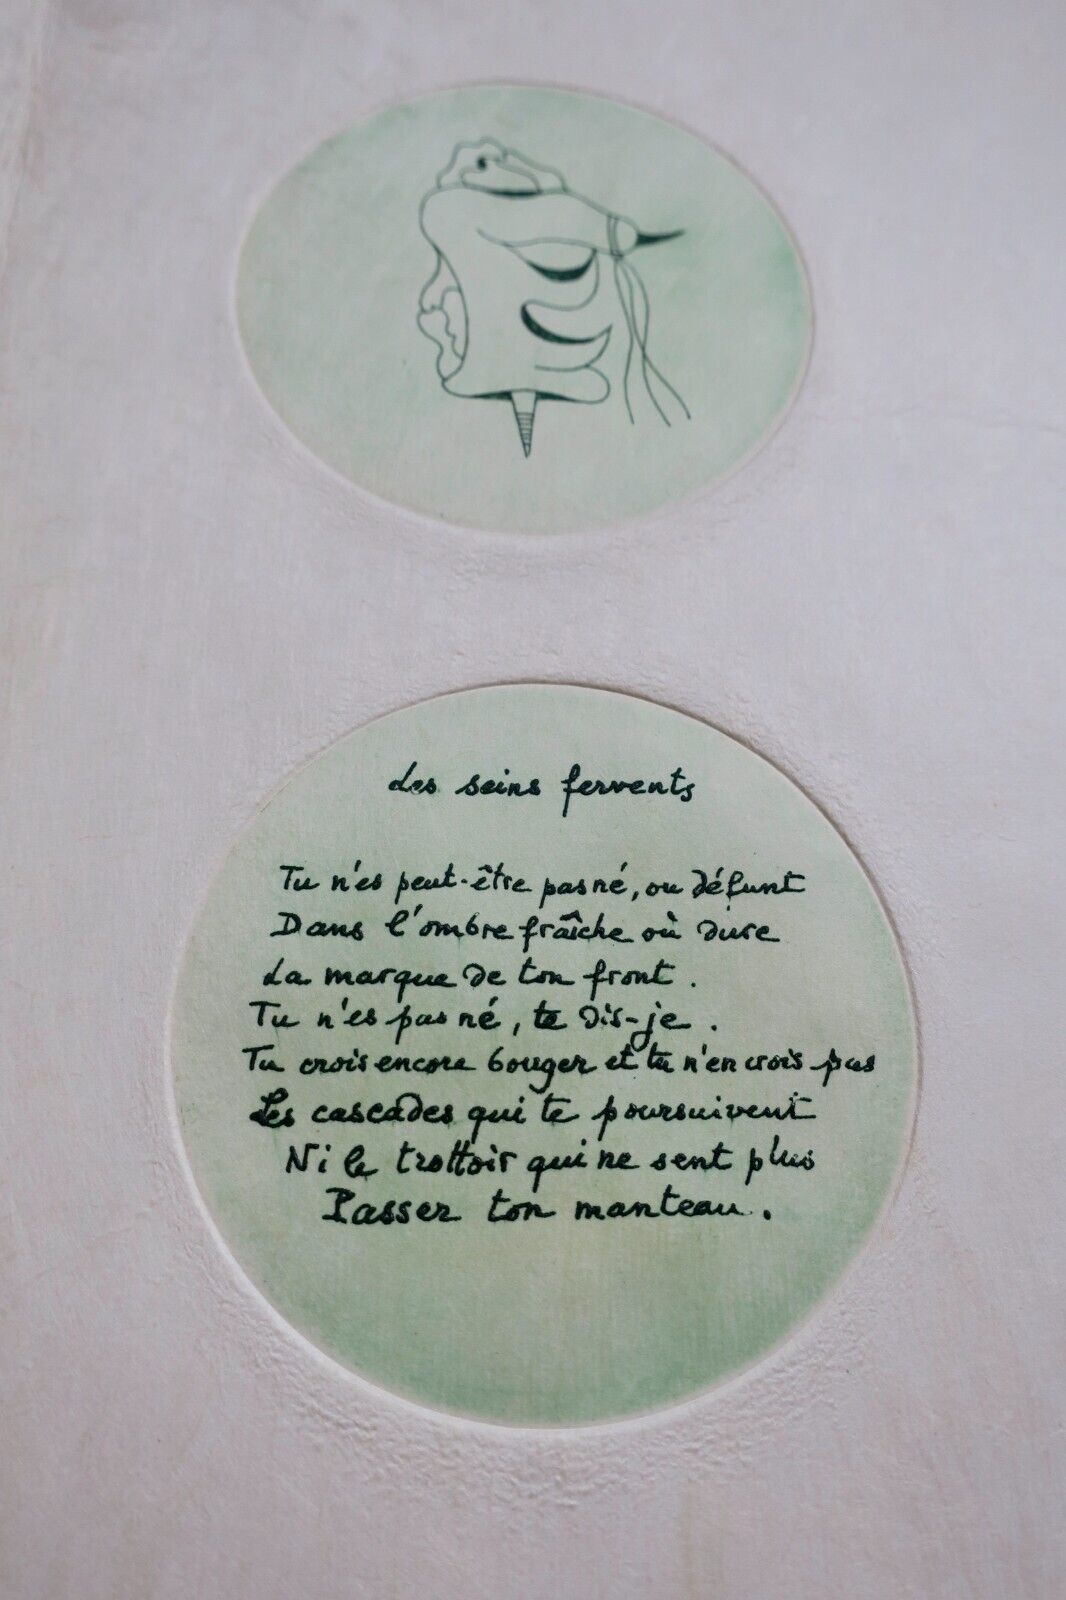 Les seins fervents
Tu n'es peut-être pas né, ou défunt
Dans l'ombre fraîche où dure
La marque de ton front.
Tu n'es pas né, te dis-je.
Tu crois encore bouger et tu n'en crois pas
Les cascades qui te poursuivent
Ni le trottoir qui ne sent plus
Passer ton manteau.